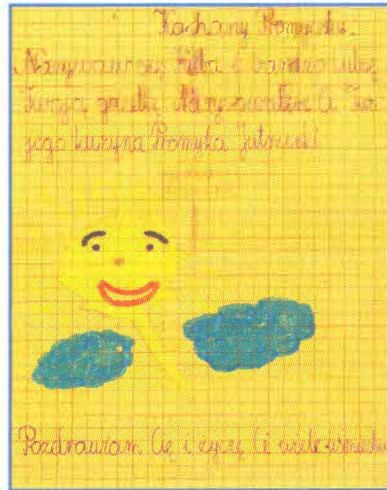 Kochany Promyczku.
Nazywam się i bardzo lubię
Twoją gazetkę. Narysowałem Ci Two
jego kuzyna Promyka Jutrzenki
Pozdrawiam Cię i życzę Ci wiele uśmiechu